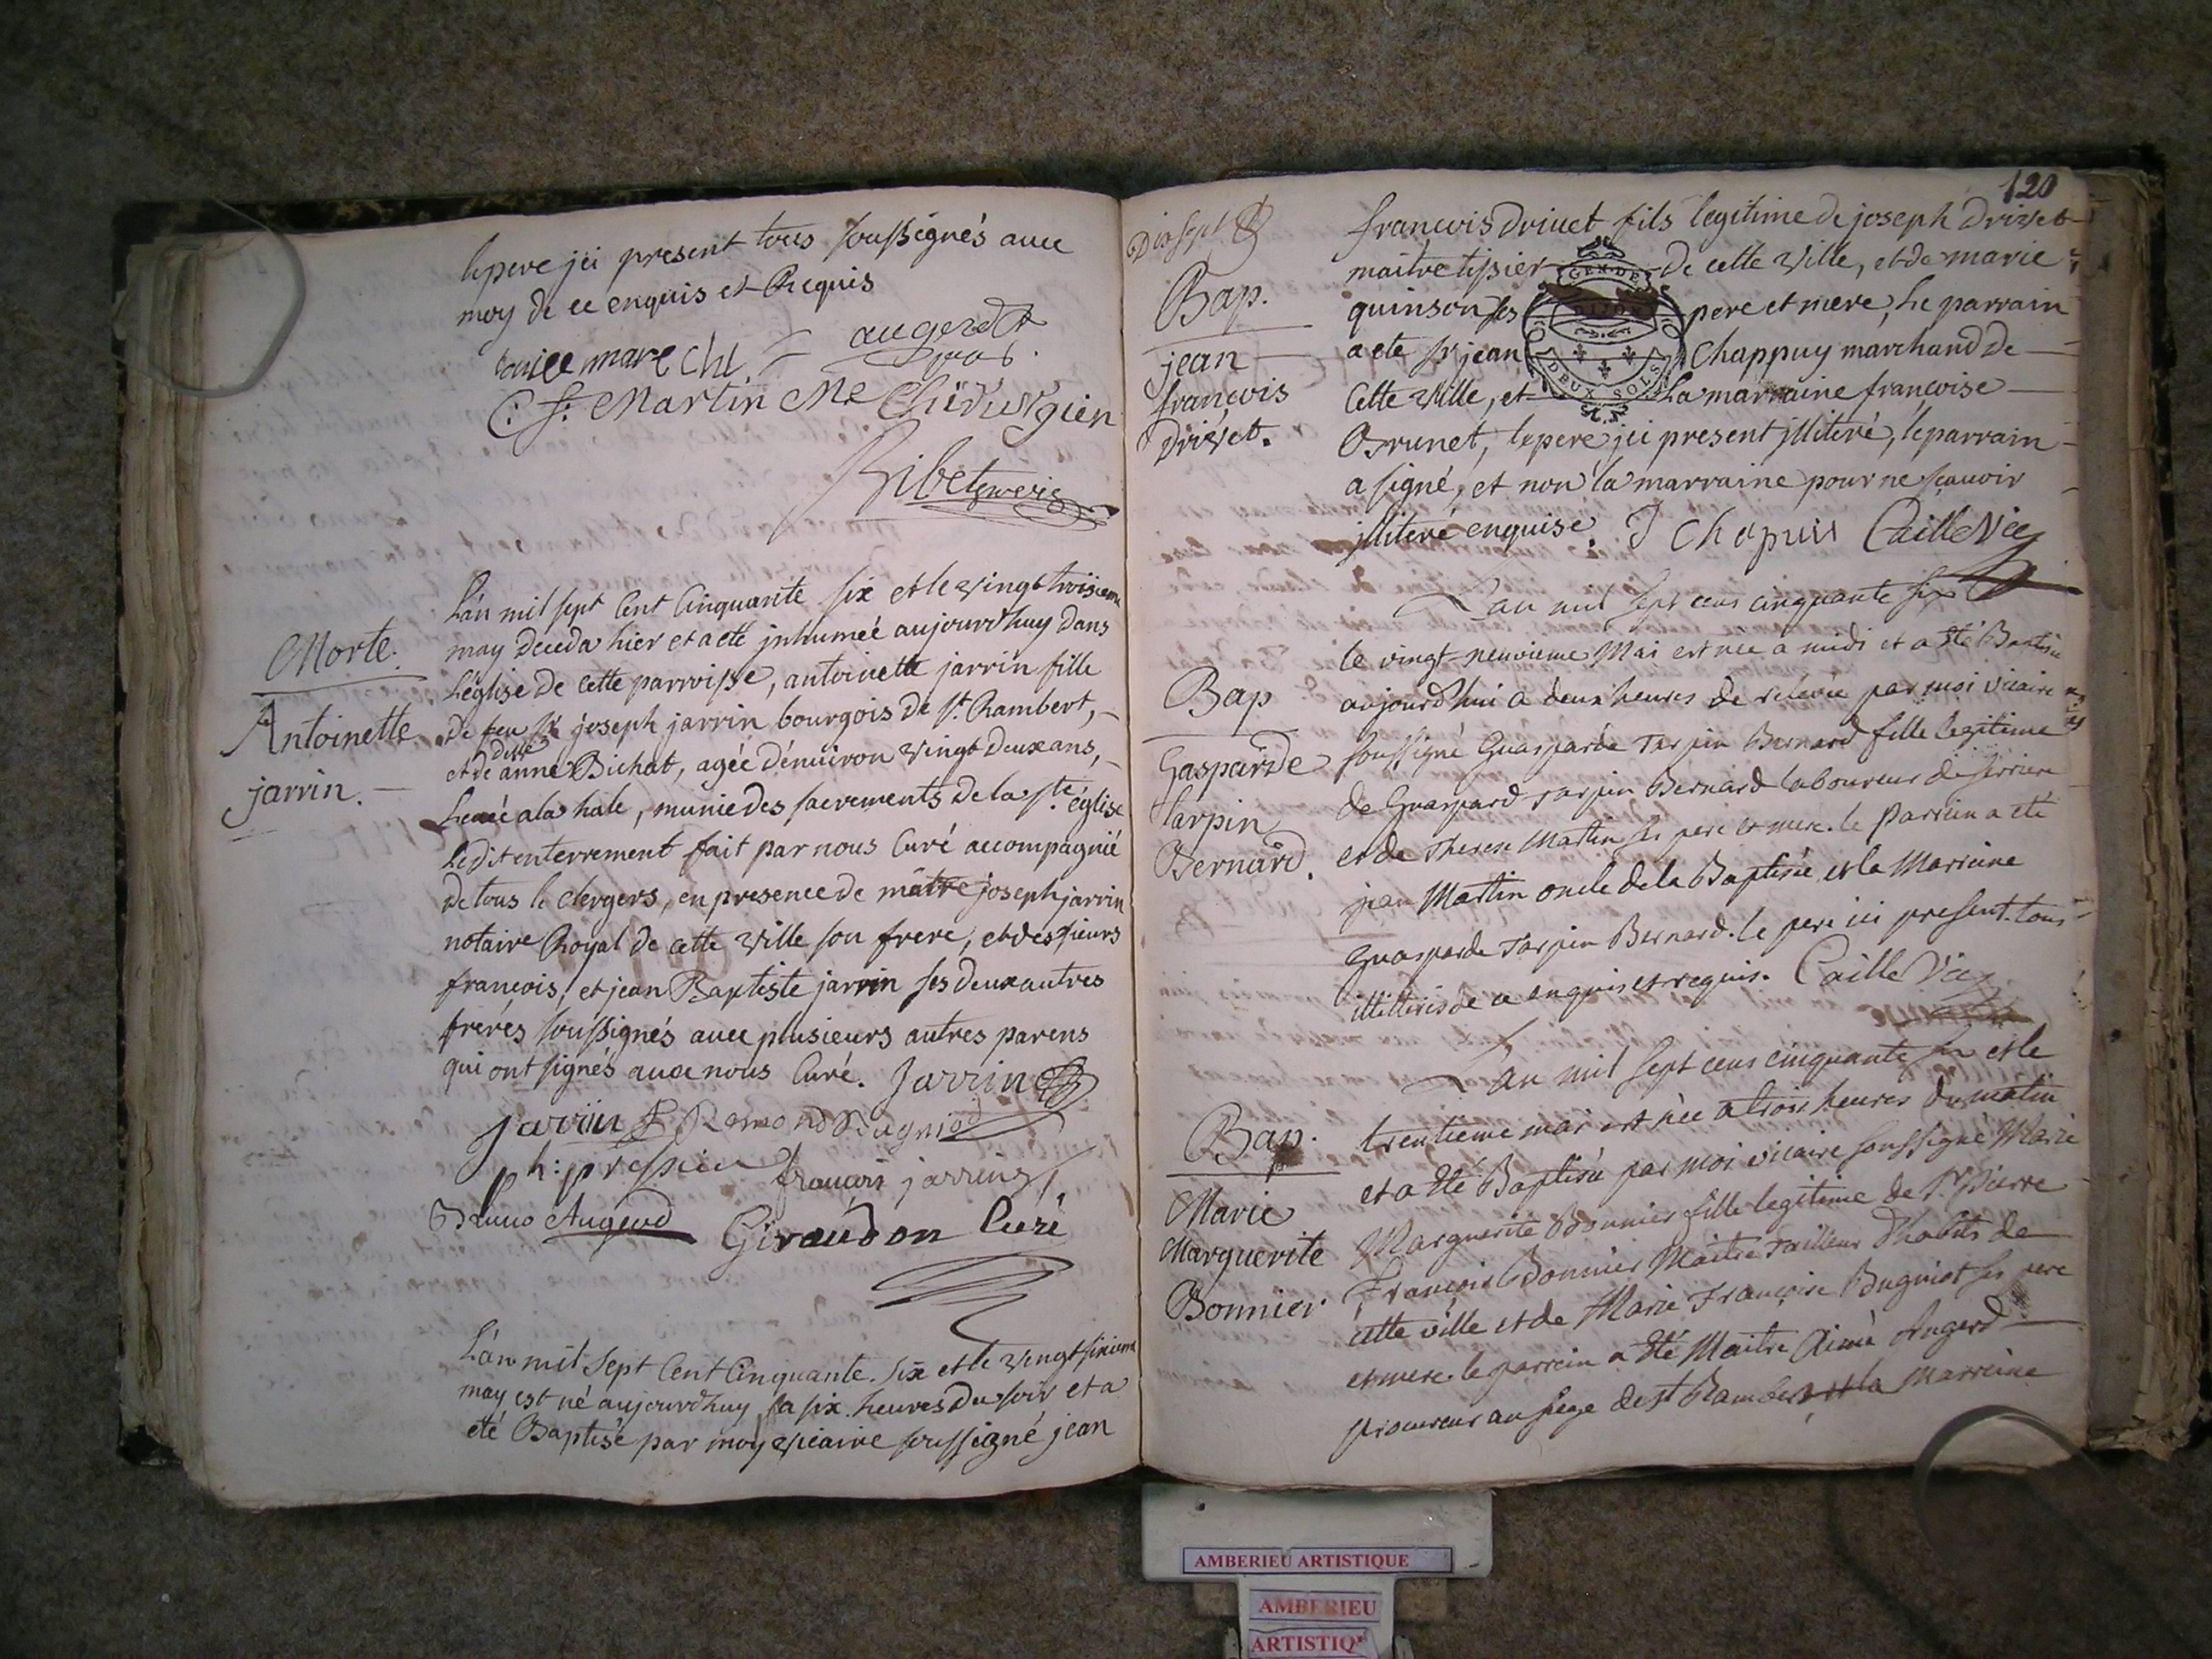 lepere jci present tous soussignés avec
moy de ce enquis et Requis
augerd
C: f: Martin Me Chirurgien
Morte.
Antoinette
jarrin.
L'an mil sept Cent Cinquante six et le vingt troisieme
may deceda hier et a eté jnhumeé aujourd'huy dans
L'église de cette parroisse, antoinette jarrin fille
de feu sr joseph jarrin bourgois de st. Rambert,
et de dlle anne Bichat, ageé d'énuiron vingt deux ans,
a la hale, munie des sacrements de la ste. église
Ledit enterrement fait par nous Curé accompagnié
de tous le clergers, en presence de maitre joseph jarrin
notaire Royal de cette ville son frere, et des sieurs
francois, et jean Baptiste jarrin ses deux autres
freres soussignés avec plusieurs autres parens
qui ont signés avec nous Curé. Jarrin
jarrin Remond Bugniod
ph: francois jarrin
Bruno Augerd Giraudon Curé
L'an mil sept Cent Cinquante six et le vingt sixieme
may est né aujourdhuy a six heures du soir et a
eté Baptisé par moy vicaire soussigné jean
120
Dixsept
Bap.
jean
francois
drivet.
francois drivet fils legitime de joseph drivet
maitre tissier de cette ville, et de marie
quinson ses pere et mere, Le parrain
a eté sr jean Chappuy marchand de
Cette ville, et La marraine francoise
Brunet, le pere jci present jlliteré, le parrain
a signé, et non la marraine pour ne scauoir
jlliteré enquise. J Chapuis Caille Vic
GEN. DE
DIJON
DEUX SOLS
Bap
Gasparde
tarpin
Bernard.
L'an mil sept cens cinquante six
le vingt-neuvieme Mai est née a midi et a été Baptisée
aujourd'hui a deux heures de relevée par moi vicaire
soussigné Guasparde Tarpin Bernard fille legitime
de Guaspard Tarpin Bernard laboureur de serriere
et de Therese Martin ses pere et mere. le Parrein a été
jean Martin oncle de la Baptisée et la Marreine
Guasparde Tarpin Bernard. le pere ici present. tous
illitterés de ce enquis et requis. Caille Vic
Bap.
Marie
Marguerite
Bonnier
L'an mil sept cens cinquante six et le
trentieme mai est née a trois heures du matin
et a été Baptisée par moi vicaire soussigné Marie
Marguerite Bonnier fille legitime de Sr Pierre
François Bonnier Maitre Tailleur d'habits de
cette ville et de Marie Françoise Bugniot ses pere
et mere. le parrein a été Maitre Aimé Augerd
procureur au siege de St Rambert et la Marreine
AMBERIEU ARTISTIQUE
AMBERIEU
ARTISTIQ